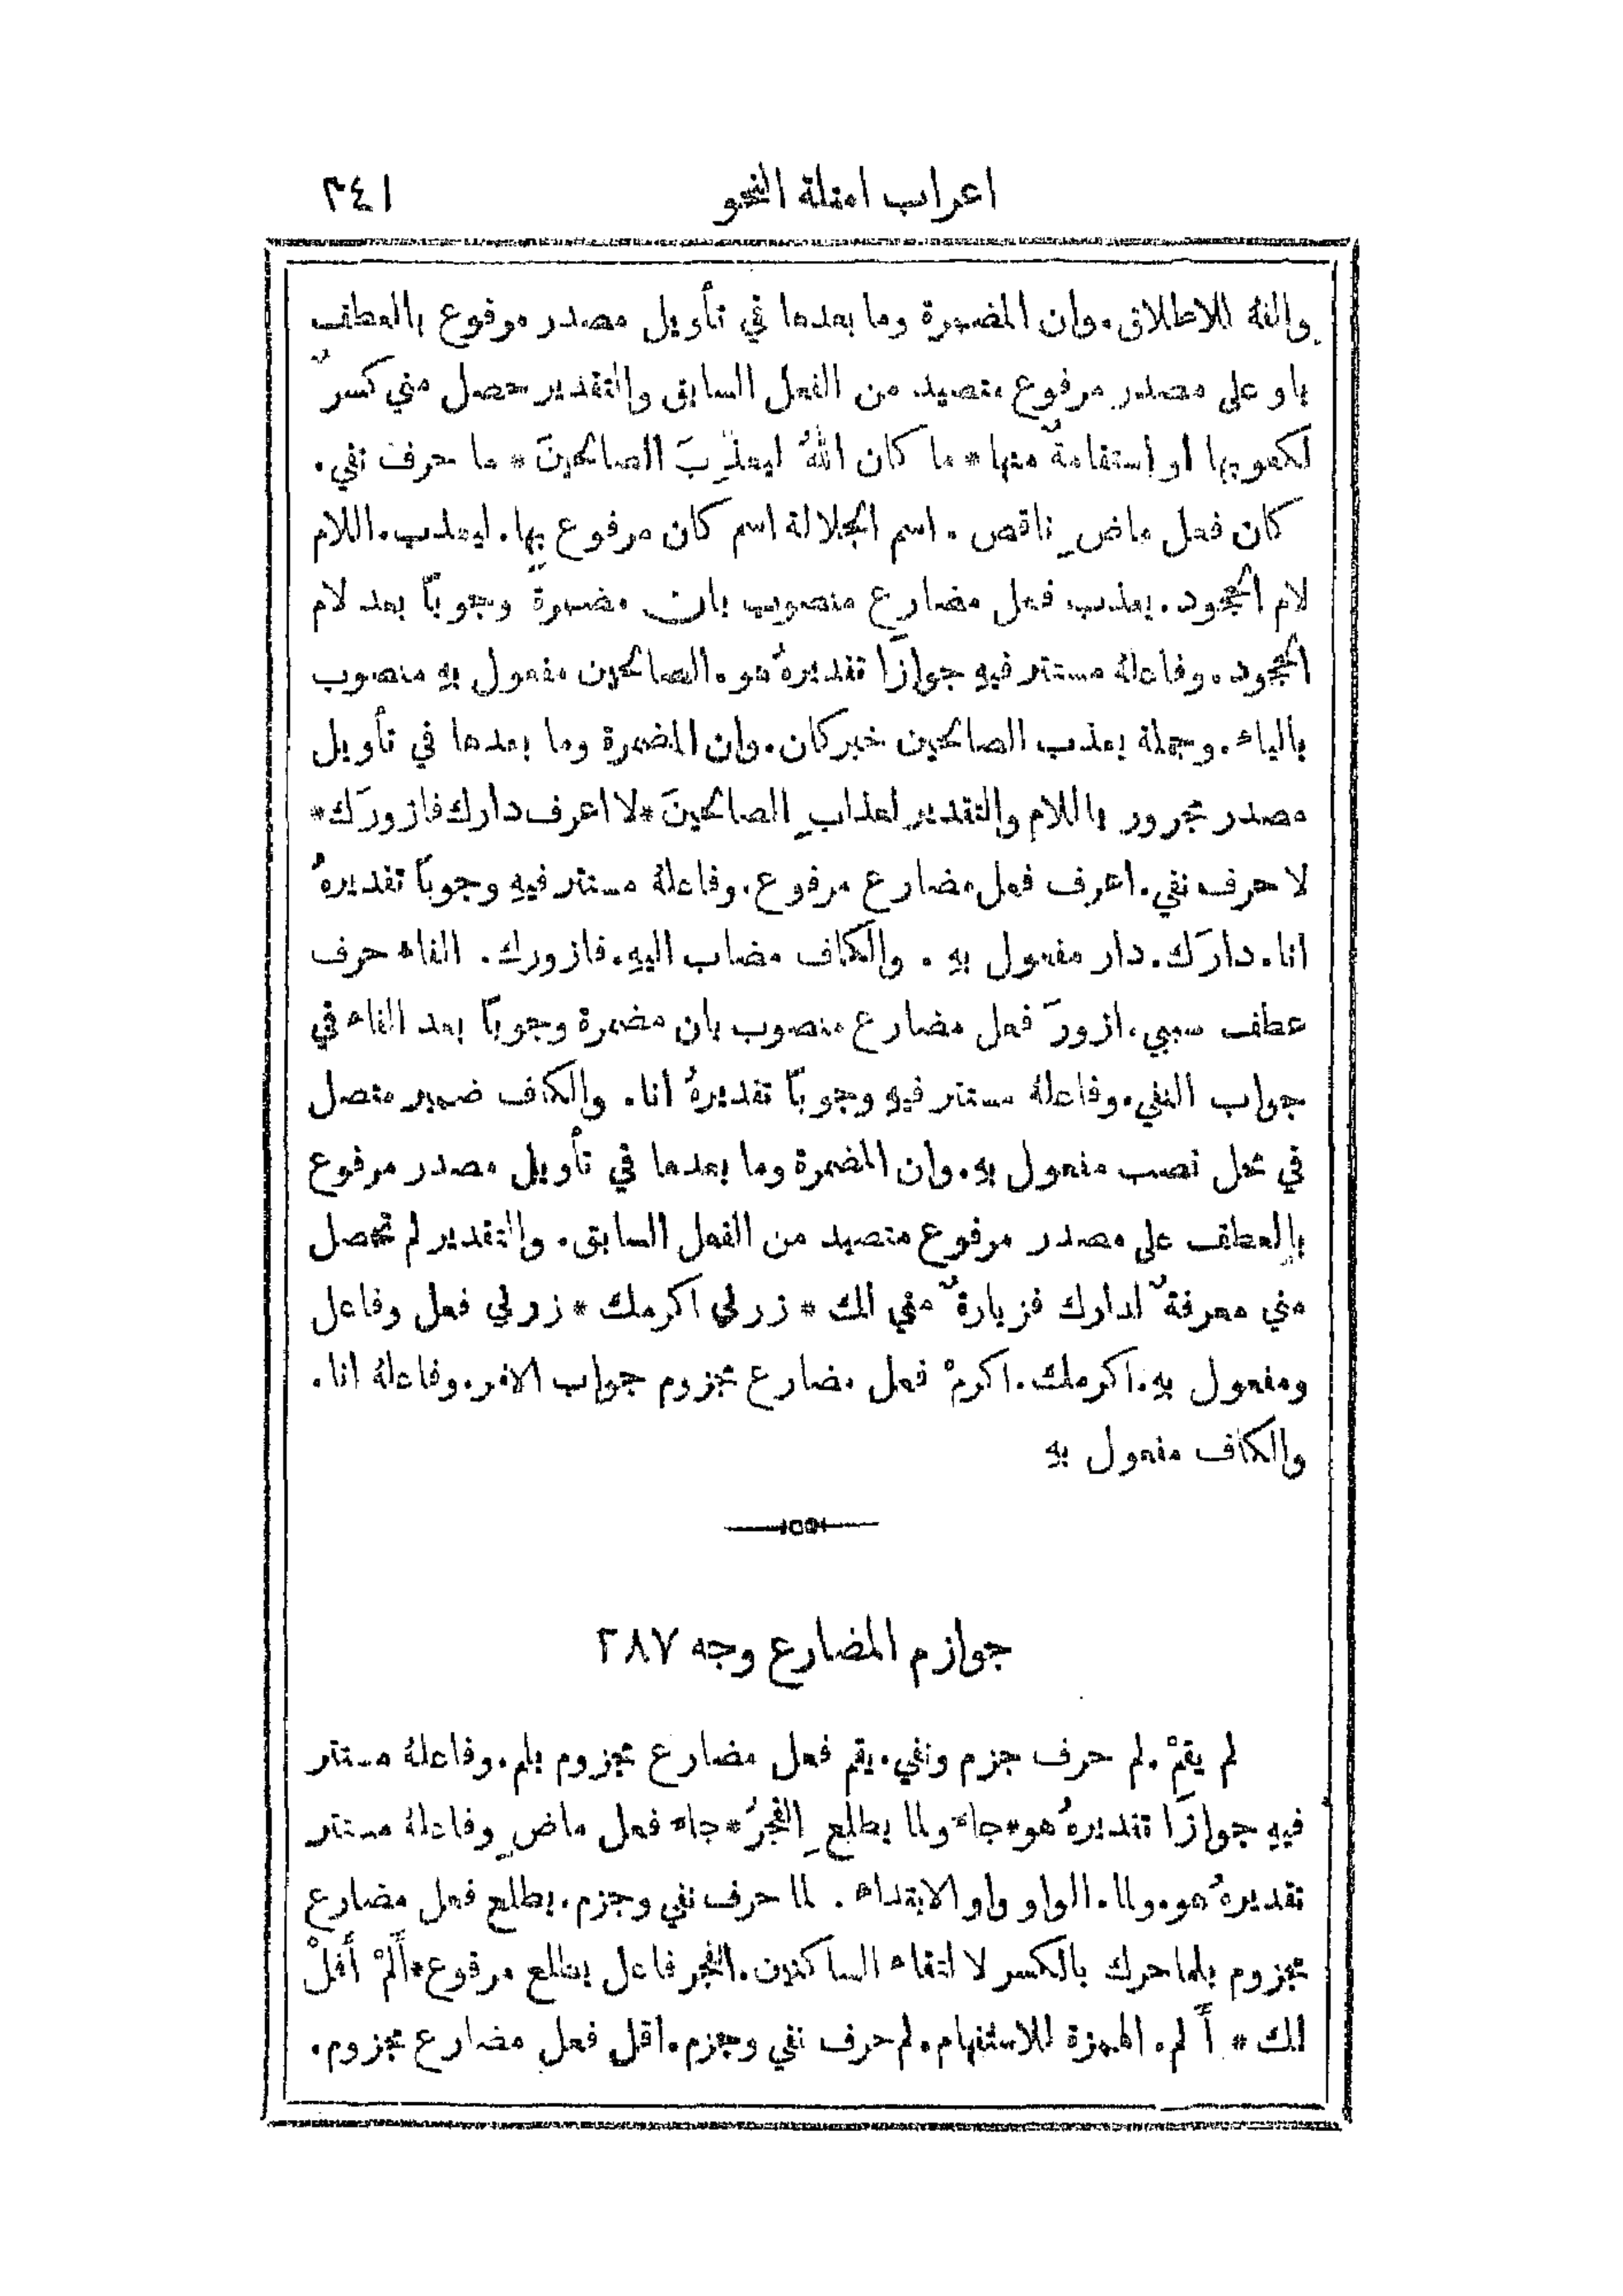 اعراب امثلة النحو ٣٤١
والفهُ للاطلاق. وان المضمرة وما بعدها في تأويل مصدر مرفوع بالعطف
باو على مصدر مرفوع متصيد من الفعل السابق والتقدير حصل مني كسرٌ
لكعوبها او استقامةٌ منها * ما كان اللهُ ليعذِّبَ الصالحينَ * ما حرف نفي.
كان فعل ماضٍ ناقص. اسم الجلالة اسم كان مرفوع بها. ليعذب. اللام
لام الجحود. يعذب فعل مضارع منصوب بان مضمرة وجوباً بعد لام
الجحود. وفاعلهُ مستتر فيهِ جوازًا تقديرهُ هو. الصالحين مفعول بهِ منصوب
بالياء. وجملة يعذب الصالحين خبر كان. وان المضمرة وما بعدها في تأويل
مصدر مجرور باللام والتقدير لعذابِ الصالحينَ * لا اعرف دارك فازورَك *
لا حرف نفي. اعرف فعل مضارع مرفوع. وفاعلهُ مستتر فيهِ وجوباً تقديرهُ
انا. دارَك. دار مفعول بهِ. والكاف مضاب اليهِ. فازورك. الفاء حرف
عطف سببي. ازورَ فعل مضارع منصوب بان مضمرة وجوباً بعد الفاء في
جواب النفي. وفاعلهُ مستتر فيهِ وجوباً تقديرهُ انا. والكاف ضمير متصل
في محل نصب مفعول بهِ. وان المضمرة وما بعدها في تأويل مصدر مرفوع
بالعطف على مصدر مرفوع متصيد من الفعل السابق. والتقدير لم تحصل
مني معرفةٌ لدارك فزيارةٌ مني لك * زرني اكرمك * زرني فعل وفاعل
ومفعول بهِ. اكرمك. اكرمْ فعل مضارع مجزوم جواب الامر. وفاعلهُ انا.
والكاف مفعول بهِ
جوازم المضارع وجه ٢٨٧
لم يقمْ. لم حرف جزم ونفي. يقم فعل مضارع مجزوم بلم. وفاعلهُ مستتر
فيهِ جوازًا تقديرهُ هو * جاء ولما يطلعِ الفجرُ * جاء فعل ماضٍ وفاعلهُ مستتر
تقديرهُ هو. ولما. الواو واو الابتداء. لما حرف نفي وجزم. يطلع فعل مضارع
مجزوم بلما حرك بالكسر لالتقاء الساكنين. الفجر فاعل يطلع مرفوع * أَلَمْ أَقلْ
لك * أَ لم. الهمزة للاستفهام. لم حرف نفي وجزم. اقل فعل مضارع مجزوم.